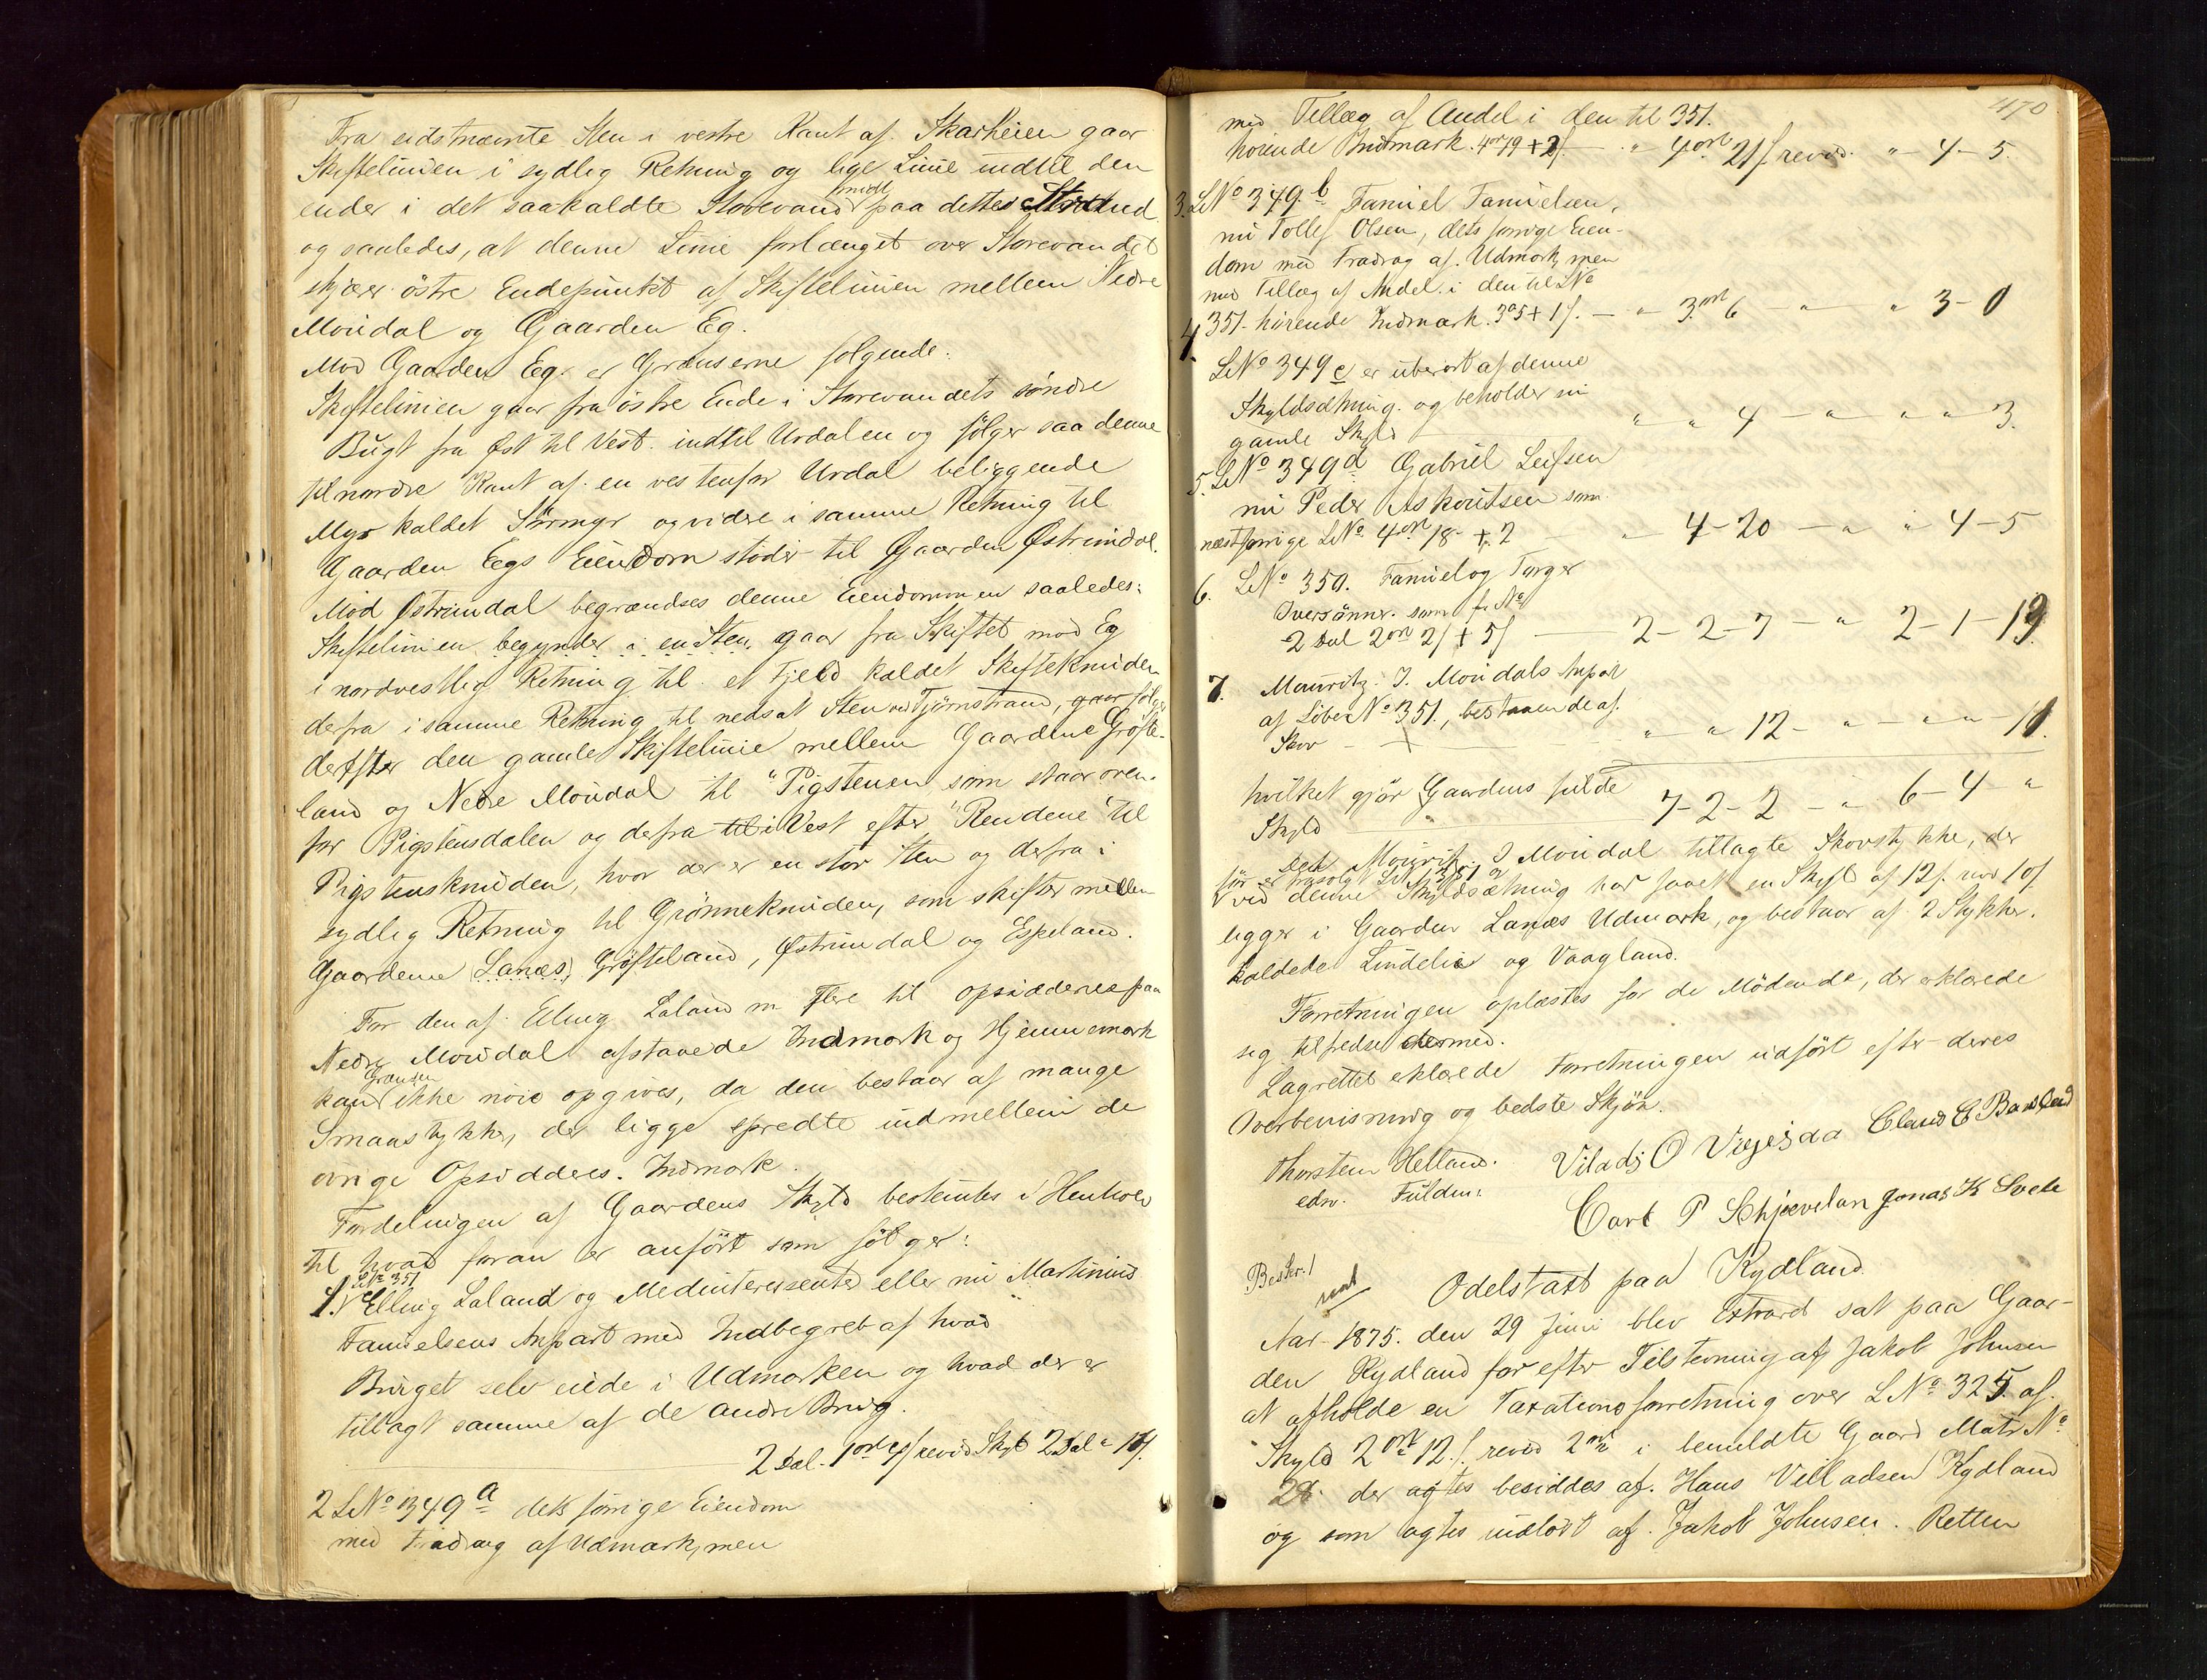 Fra sidstnævnte Sten i vestre Kant af Skarheien gaar
Skiftelinien i sydlig Retning og lige Linie indtil den
ender i det saakaldte Storevand midt paa dettes Strand
og saaledes, at denne Linie forlænget over Storevandet
skjærer östre Endepunkt af Skiftelinien mellem Nedre
Moüdal og Gaarden Eg.
Mod Gaarden Eg er Grænserne følgende:
Skiftelinien gaar fra östre Ende i Storevandets söndre
Bugt fra Øst til Vest indtil Urdalen og fölger saa denne
til nordre Kant af en vestenfor Urdal beliggende
Myr kaldet Störmyr og videre i samme Retning til
Gaarden Eegs Eiendom stöder til Gaarden Østrimdal.
Mod Østrimdal begrændses denne Eiendommen saaledes:
Skiftelinien begynder i en Sten, gaar fra Skiftet mod Eg
i nordvestlig Retning til et Fjeld kaldet Skifteknuden
derfra i samme Retning til nedsat Sten ved Tjörnstrand, gaar følger
derefter den gamle Skiftelinie mellem Gaardene Gröfte-
land og Nedre Moüdal til "Pigstenen" som staar oven-
for Pigstensdalen og derfra til i Vest efter "Rendene" til
Pigstensknuden, hvor der er en stor Sten og derfra i
sydlig Retning til Grönneknuden, som skifter mellem
Gaardene (Lanæs) Gröfteland, Østrimdal og Espeland.
For den af Elling Laland m. Flere til Opsiddernes paa
Nedre Moüdal afstaaede Indmark og Hjemmemark
kan Grænsen ikke nöie opgives, da den bestaar af mange
Smaastykker, der ligge spredte indmellem de
övrige Opsidderes Indmark.
Fordelingen af Gaardens Skyld bestemtes i Henhold
til hvad foran er anfört som fölger:
1. LNo 351 Elling Laland og Medinteressenter eller nu Martinius
Samuelsens Anpart med Indbegreb af hvad
Bruget selv eiede i Udmarken og hvad der er
tillagt samme af de andre Brug.
2 Dal. 1 ort revid Skyld 2 Dal
2 LNo 349 a dets forrige Eiendom
med Fradrag af Udmark, men
470
med Tillæg af Andel i den til 351.
hörende Indmark. 4 ort 19 + 2 f — " 4 ort 21 f revid. " 4 - 5.
3. LNo 349 b Samuel Samuelsen,
nu Tollef Olsen, dets forrige Eien-
dom med Fradrag af Udmark, men
med Tillæg af Andel i den til LNo
351 hörende Indmark. 3 o 5 + 1 f. — " 3 ort 6 — " — " 3 - 0
4.
LNo 349 c er uberört af denne
Skyldsætning og beholder sin
gamle Skyld " " 4 — " — " " 3.
5. LNo 349 d Gabriel Leifsen
nu Peder Askoutsen som
næstforrige LNo. 4 ort 18 + 2 — " 4 - 20 — " " 4 - 5
6. LNo 350. Samuel og Torger
Iversönner. som f. No
2 Dal 2 ort 2 f + 5 f — 2 - 2 - 7 — " 2 - 1 - 19
7. Mauritz J. Moüdals Anpart
af LöbeNo 351, bestaaende af
Skov — " " 12 — " — " " 10.
hvilket gjör Gaardens fulde
Skyld 7 - 2 - 2 — " 6 - 4 - "
Det Mouritz J Moüdal tillagte Skovstykke, der
ved denne Skyldsætning har faaet en Skyld af 12 f. revid 10 f
ligger i Gaarden Lanæs Udmark, og bestaar af 2 Stykker.
kaldede Lindelie og Vaagland.
Forretningen oplæstes for de Mödende, der erklærede
sig tilfredse dermed.
Lagrettet erklærede Forretningen udfört efter deres
Overbevisning og bedste Skjön.
Thorsten Helland. Viladj O Eland E Bavsland
edsv. Fuldm: Carl P Schjævelan Jonas K Svele
Beskr. /
Odelstaxt paa Rydland
Aar 1875. den 29 Juni blev Extraret sat paa Gaar-
den Rydland for efter Tilstevning af Jakob Johnsen
at afholde en Taxationsforretning over LNo 325 af
Skyld 2 ort 12 f. revid 2 ort i bemeldte Gaard MatrNo
28 der agtes besiddes af Hans Villadsen Rydland
og som agtes indlöst af Jakob Johnsen. Retten